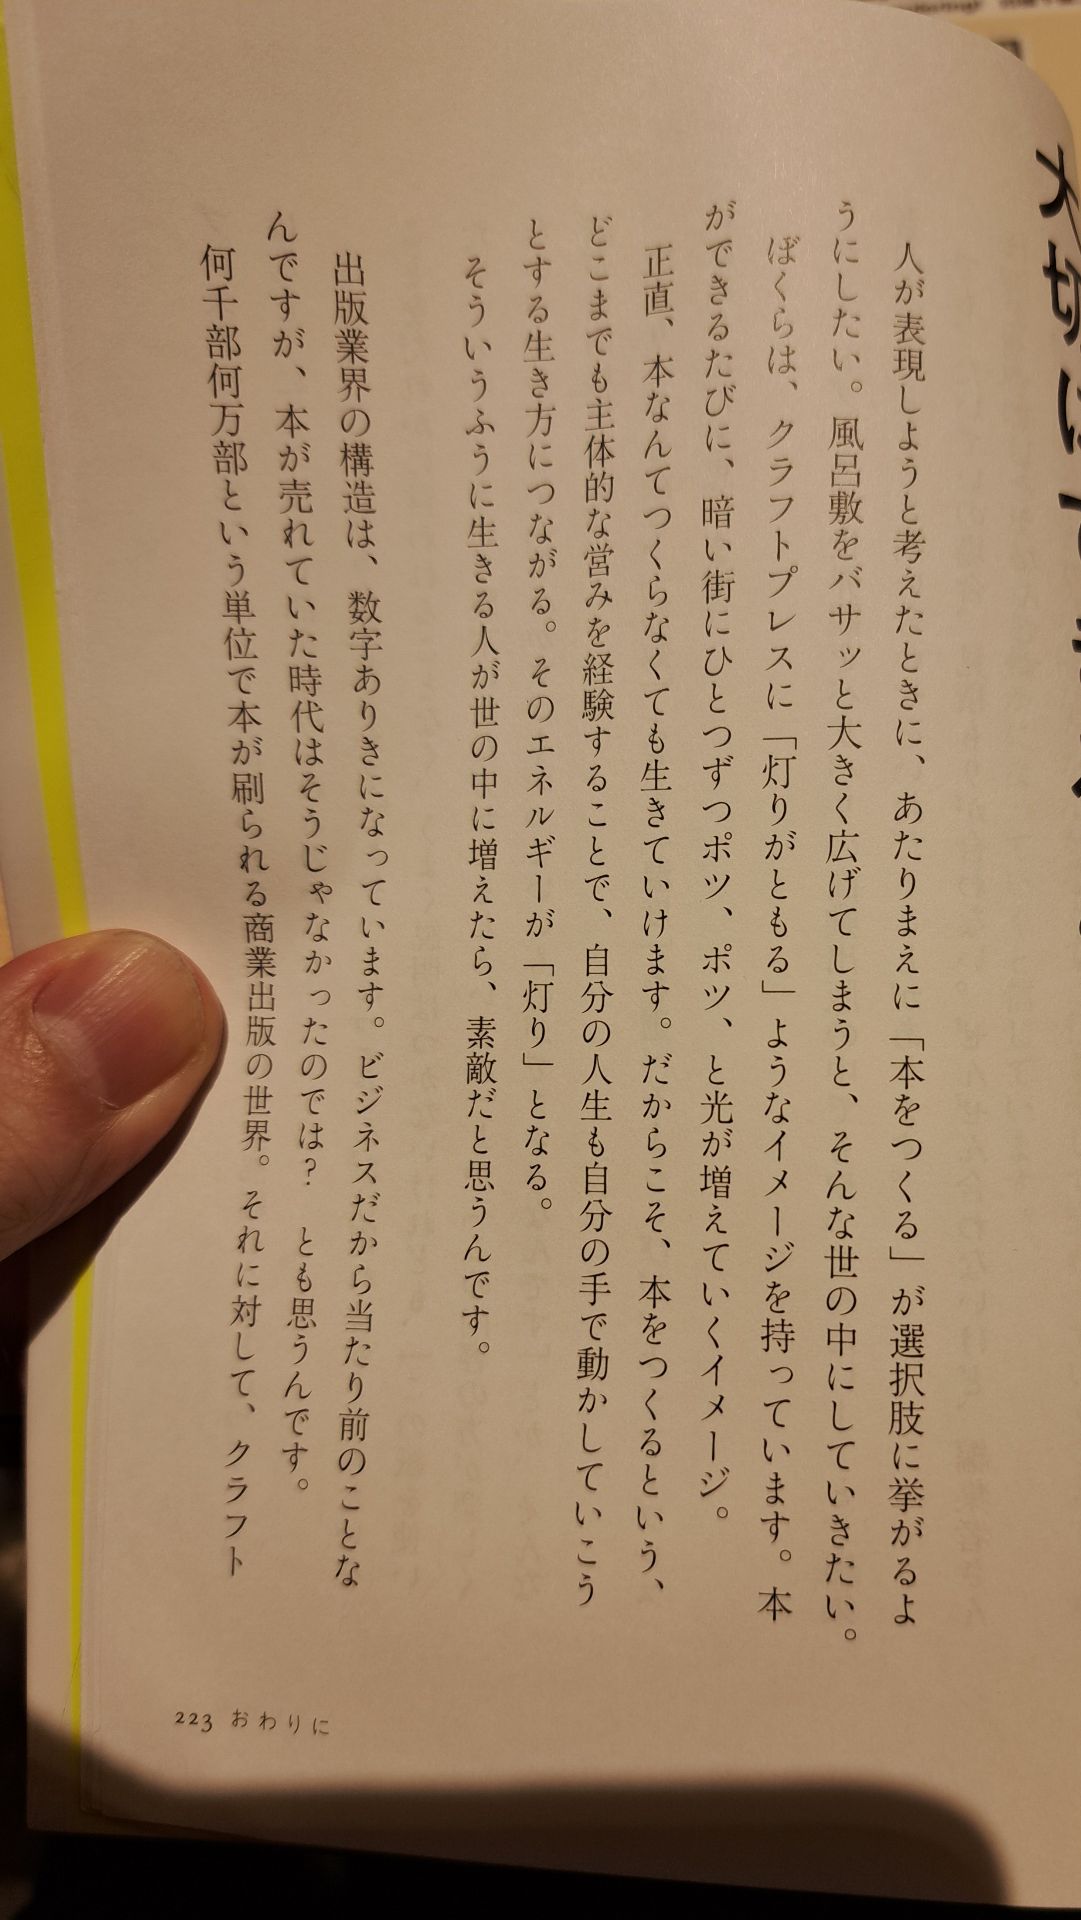 人が表現しようと考えたときに、あたりまえに「本をつくる」が選択肢に挙がるよ
うにしたい。風呂敷をバサッと大きく広げてしまうと、そんな世の中にしていきたい。
ぼくらは、クラフトプレスに「灯りがともる」ようなイメージを持っています。本
ができるたびに、暗い街にひとつずつポツ、ポツ、と光が増えていくイメージ。
正直、本なんてつくらなくても生きていけます。だからこそ、本をつくるという、
どこまでも主体的な営みを経験することで、自分の人生も自分の手で動かしていこう
とする生き方につながる。そのエネルギーが「灯り」となる。
そういうふうに生きる人が世の中に増えたら、素敵だと思うんです。
出版業界の構造は、数字ありきになっています。ビジネスだから当たり前のことな
んですが、本が売れていた時代はそうじゃなかったのでは？　とも思うんです。
何千部何万部という単位で本が刷られる商業出版の世界。それに対して、クラフト
223 おわりに